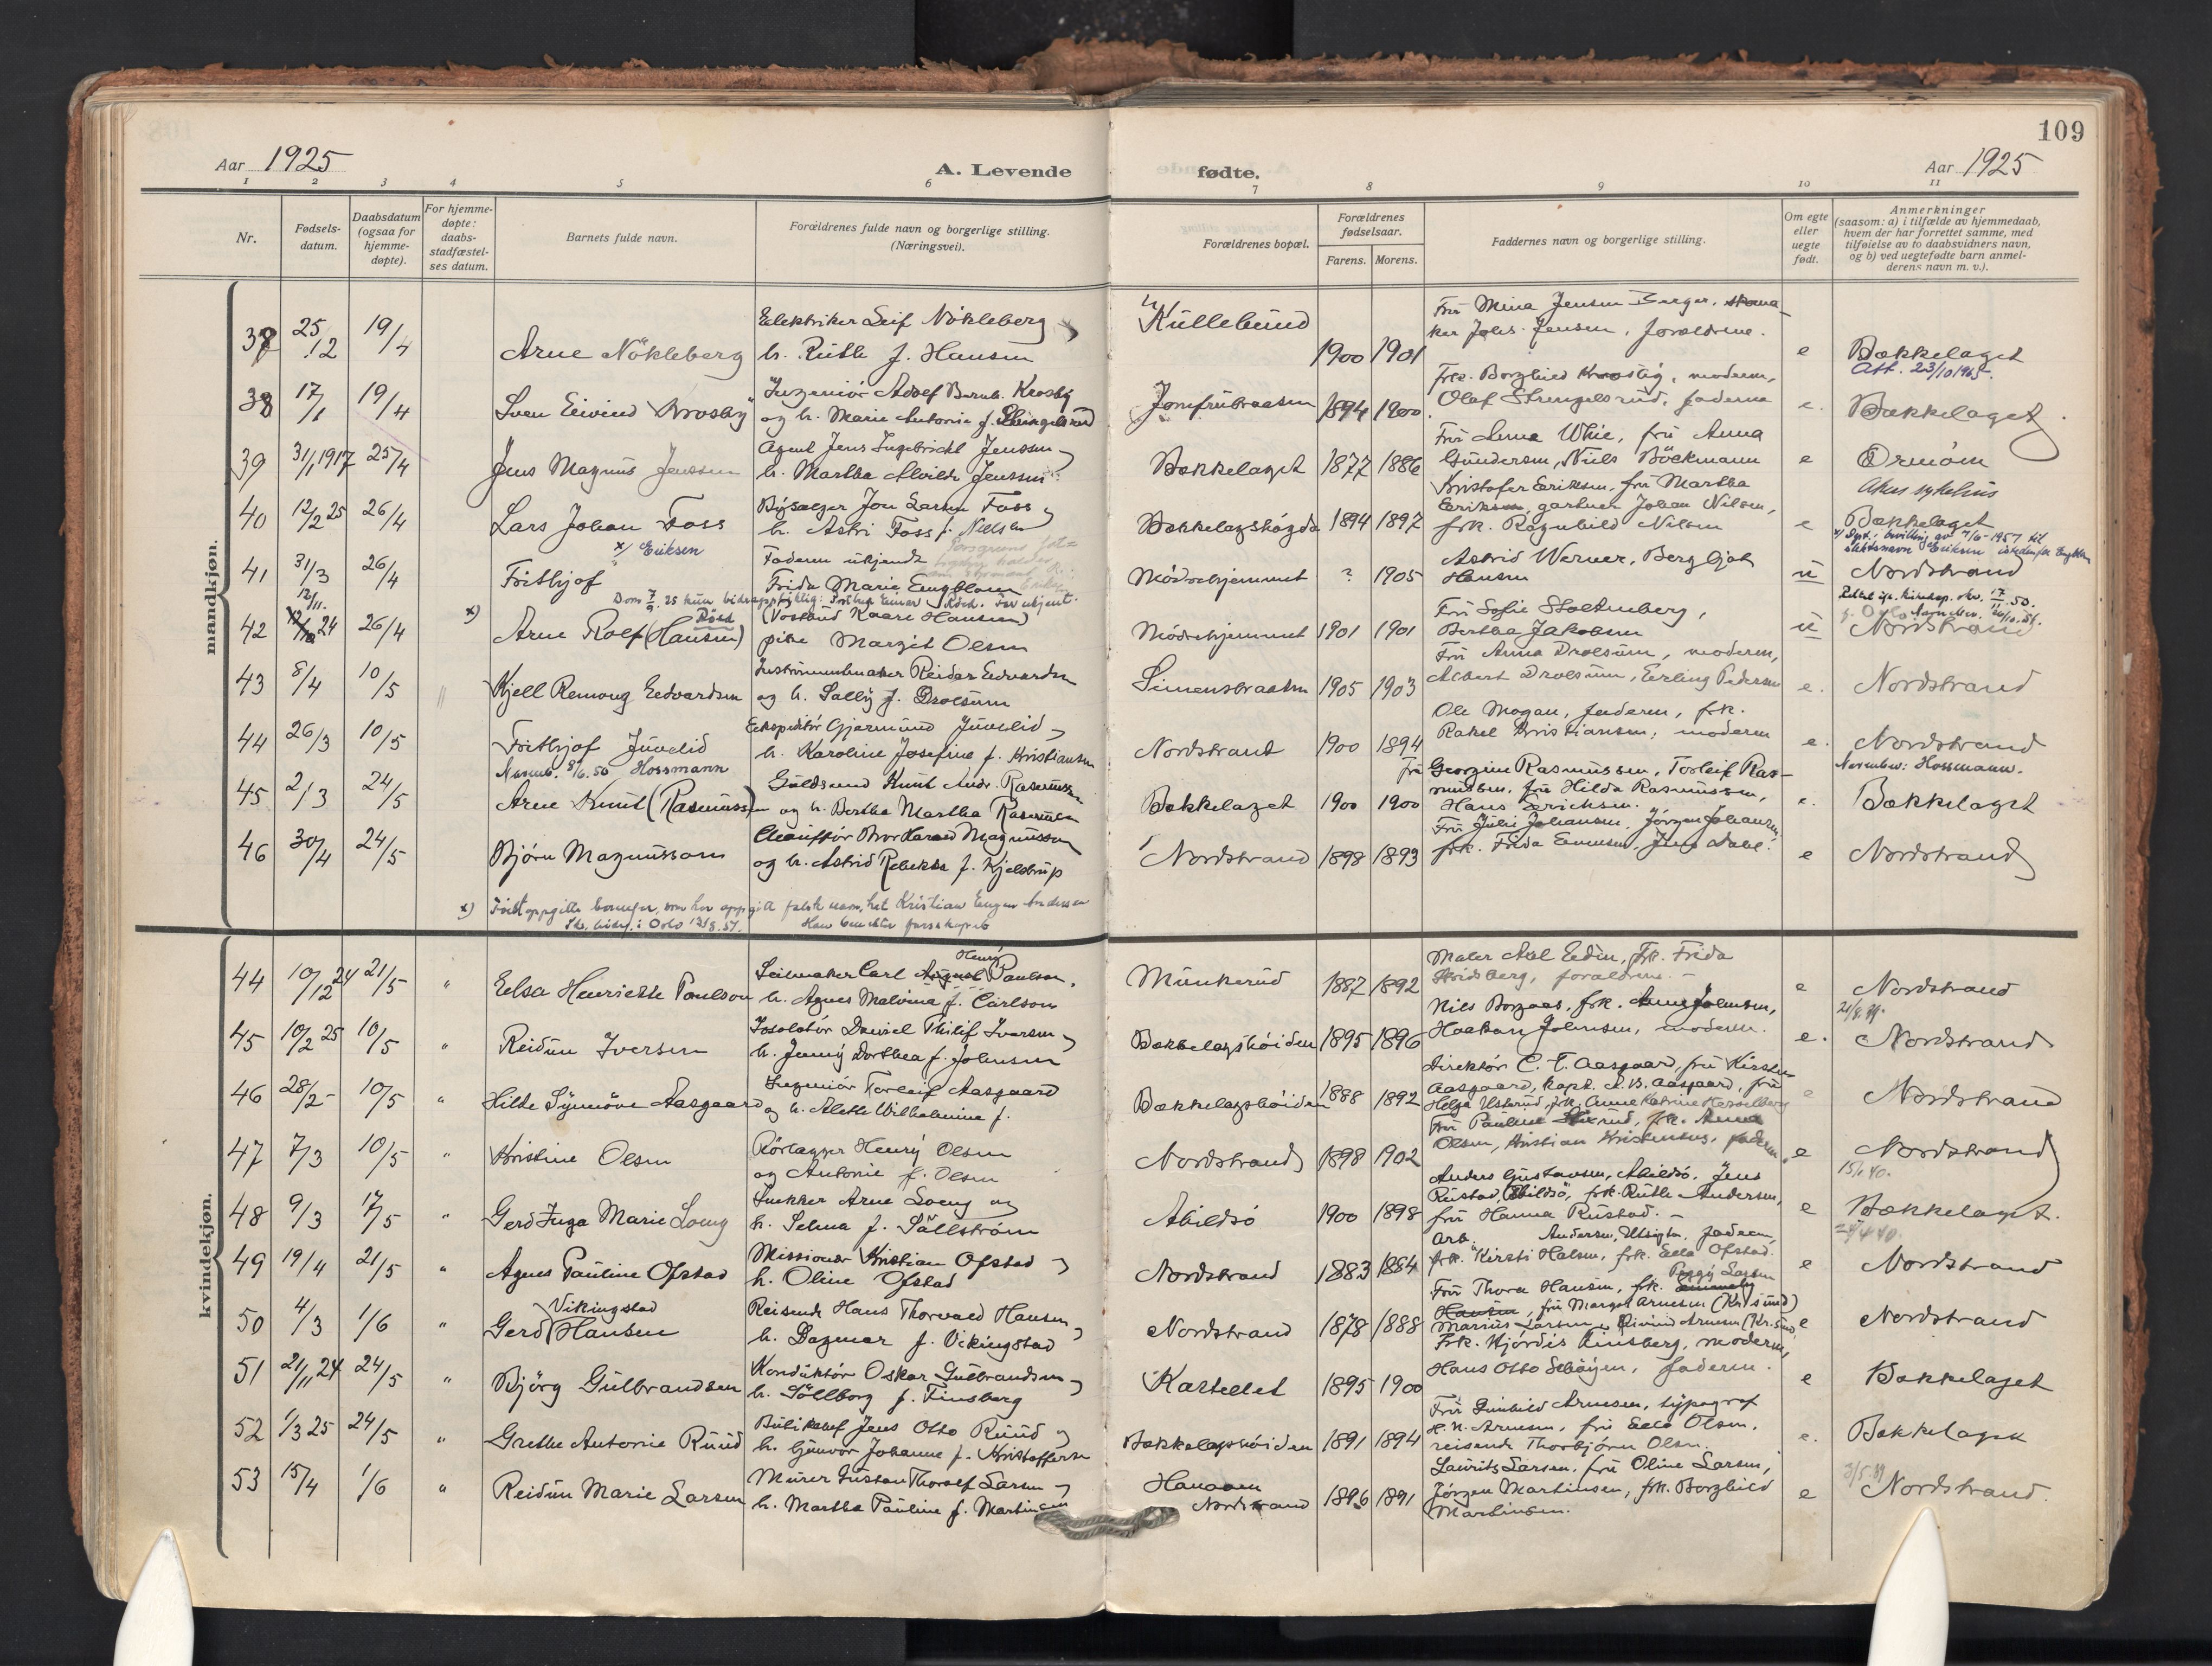 109
Aar 1925
A. Levende
fødte.
Aar 1925
1 2 3 4 5 6 7 8 9 10 11
Nr.
Fødsels-
datum.
Daabsdatum
(ogsaa for
hjemme-
døpte).
For hjemme-
døpte:
daabs-
stadfæstel-
ses datum.
Barnets fulde navn.
Forældrenes fulde navn og borgerlige stilling.
(Næringsvei).
Forældrenes bopæl.
Forældrenes
fødselsaar.
Farens. Morens.
Faddernes navn og borgerlige stilling.
Om egte
eller
uegte
født.
Anmerkninger
(saasom: a) i tilfælde av hjemmedaab,
hvem der har forrettet samme, med
tilføielse av to daabsvidners navn,
og b) ved uegtefødte barn anmel-
derens navn m. v.).
mandkjøn.
37 25/12 19/4 Arne Nökleberg
Elektriker Leif Nökleberg
h. Ruth f. Hansen
Kullebund 1900 1901
Fru Mina Jensen Berger, skoma-
ker Johs. Jensen, forældrene.
e Bækkelaget
Att. 23/10 1965.
38 17/1 19/4 Sven Eivind Krosby
Ingeniör Adolf Bernh. Krosby
og h. Marie Antonie f. Strengelsrud
Jomfrubraaten 1894 1900
Frk. Borghild Krosby, moderen,
Olaf Strengelsrud, faderen
e. Bækkelaget.
39 31/1 1917 25/4 Jens Magnus Jenssen
Agent Jens Ingebricht Jenssen
h. Martha Alvilde Jenssen
Bækkelaget 1877 1886
Fru Anna
Gundersen, Niels Böckmann
e Ormöen
Akers sykehus
40 12/2 25 26/4 Lars Johan Foss
Bysælger Jon Larsen Foss
h. Astri Foss f. Nielsen
Bækkelagshögda 1894 1897
Kristofer Eriksen, fru Martha
Eriksen, gartner Johan Nilsen,
frk. Ragnhild Nilsen
e Bækkelaget
41 31/3 26/4 Frithjof
x/ Eriksen
Faderen ukjendt
Frida Marie Engblom
Mödrehjemmet ? 1905
Astrid Werner, Bergljot
Hansen
u Nordstrand
x/ bevilling av 7/6-1957 til
slektsnavn Eriksen istedenfor Engblom
42 12/11 24 26/4 x) Arne Rolf (Hansen)
(Vostbud Kaare Hansen)
pike Margit Olsen
Mödrehjemmet 1901 1901
Fru Sofie Stoltenberg,
Bertha Jakobsen
u Nordstrand
43 8/4 10/5 Kjell Remong Edvardsen
Instrumentmaker Reidar Edvardsen
og h. Sally f. Drolsum
Simensbraaten 1905 1903
Fru Anna Drolsum, moderen,
Albert Drolsum, Erling Pedersen
e. Nordstrand
44 26/3 10/5 Frithjof Juvelid
Navneb. 8/6.50 Hossmann
Ekspeditör Gjermund Juvelid
h. Karoline Josefine f. Kristiansen
Nordstrand 1900 1894
Ole Mogan, faderen, frk.
Rakel Kristiansen, moderen
e. Nordstrand
Navnebev: Hossmann.
45 2/3 24/5 Arne Knut (Rasmussen)
Guldsmed Knut Andr. Rasmussen
og h. Bertha Martha Rasmussen
Bækkelaget 1900 1900
Fru Georgine Rasmussen, Torleif Ras-
mussen, fru Hilda Rasmussen,
Hans Erichsen.
e. Bækkelaget
46 30/4 24/5 Björn Magnussen
Chaufför Thor Harald Magnussen
og h. Astrid Rebekka f. Kjelstrup
Nordstrand 1898 1893
Fru Julie Johansen, Jörgen Johansen,
frk. Frida Evensen, Jens Dahl.
e Nordstrand
x) Först oppgitte barnefar, som har oppgitt falsk navn, het Kristian Eugen Andersen
Han benektet farskapet
kvindekjøn.
44 10/12 24 21/5 " Elsa Henriette Paulson
Seilmaker Carl August Henry Paulson,
h. Agnes Malvina f. Carlson
Munkerud 1887 1892
Maler Axel Edin, Frk. Frida
forældrene. –
e Nordstrand
45 10/2 25 10/5 " Reidun Iversen
Isolatör Daniel Philip Iversen
h. Jenny Dorthea f. Johnsen
Bækkelagshöiden 1895 1896
Nils Borgaas, frk. Anna Johnsen,
Haakon Johnsen, moderen.
e. Nordstrand
46 28/2 – 10/5 " Hilde Synnöve Aasgaard
Ingeniör Torleif Aasgaard
og h. Alethe Wilhelmine f.
Bækkelagshöiden 1888 1892
Direktör C. T. Aasgaard, fru Kirsten
Aasgaard, kapt. A. B. Aasgaard, fru
Helga Ustvud, frk. Anne Katrine Hesselberg
e Nordstrand
47 7/3 10/5 " Kristine Olsen
Rörlægger Henry Olsen
og Antonie f. Olsen
Nordstrand 1898 1902
Fru Pauline frk. Anna
Olsen, Kristian Kristensen, faderen
e Nordstrand
15/1 40.
48 9/3 17/5 " Gerd Inga Marie Loeng
Snekker Arne Loeng og
h. Selma f. Sällström
Abildsö 1900 1898
Anders Gustavsen, Abildsö, Jens
Rustad, Abildsö, frk. Ruth Andersen,
fru Hanna Rustad. –
e Bækkelaget.
49 19/4 21/5 " Agnes Pauline Ofstad
Missionær Kristian Ofstad
h. Oline Ofstad
Nordstrand 1883 1884
Arb. Andersen, Utsigten, faderen,
frk. Kirsti Halsen, frk. Ella Ofstad.
e Nordstrand
50 4/3 1/6 " Gerd Vikingstad Hansen
Reisende Hans Thorvald Hansen
h. Dagmar f. Vikingstad
Nordstrand 1878 1888
Fru Thora Hansen, frk. Peggy Larsen
Hansen, fru Margot Arnesen (Kr.sund)
Marius Larsen, Eivind Arnesen (Kr.sund)
e Nordstrand
51 21/11 24 24/5 " Björg Gulbrandsen
Konduktör Oskar Gulbrandsen
h. Söllborg f. Finsberg
Kastellet 1895 1900
Frk. Hjördis Finsberg, moderen,
Hans Otto Schöyen, faderen.
e Bækkelaget
52 1/3 25 24/5 " Grethe Antonie Ruud
Butikkchef Jens Otto Ruud og
h. Gunvor Johanne f. Kristoffersen
Bækkelagshöiden 1891 1894
Fru Gunhild Arnesen, typograf
H. N. Arnesen, fru Ella Olsen,
reisende Thorbjörn Olsen.
e. Bækkelaget
53 15/4 1/6 " Reidun Marie Larsen
Murer Gustav Thoralf Larsen
h. Martha Pauline f. Martinsen
Hanaaen
Nordstrand 1896 1891
Laurits Larsen, fru Oline Larsen,
Jörgen Martinsen, frk. Borghild
Martinsen.
e Nordstrand.